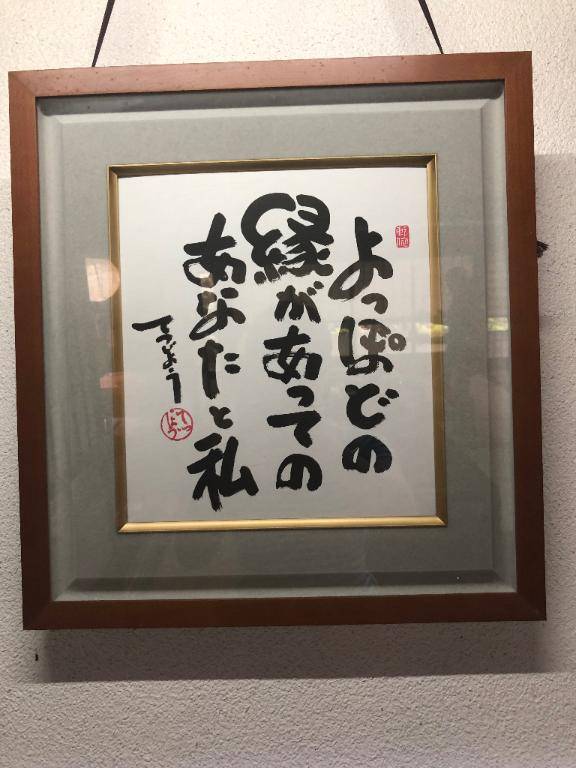 よっぽどの
縁があっての
あなたと私
てつじょう
てつじょう